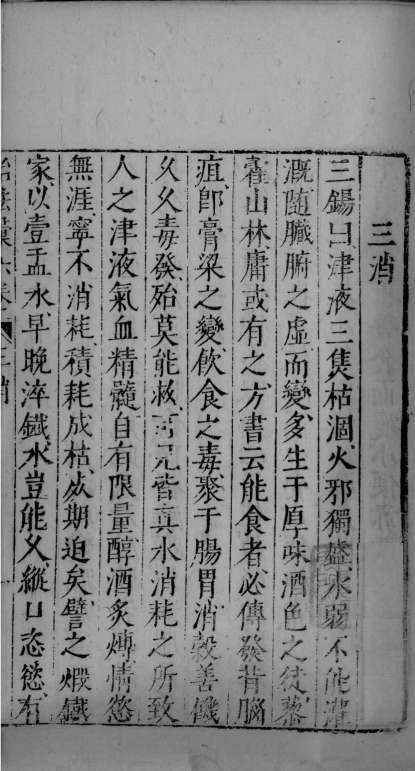 三消
三錫曰津液三隻枯涸火邪獨盛水弱不能灌
溉隨臟腑之虛而變多生于厚味酒色之徒藜
藿山林庸或有之方書云能食者必傳發背腦
疽卽膏梁之變飲食之毒聚于腸胃消穀善饑
久久毒發殆莫能救可見皆真水消耗之所致
人之津液氣血精髓自有限量醇酒炙煿情慾
無涯寧不消耗積耗成枯死期迫矣譬之煆鐵
家以壹盂水早晚淬鐵水豈能久縱口恣慾有
三消